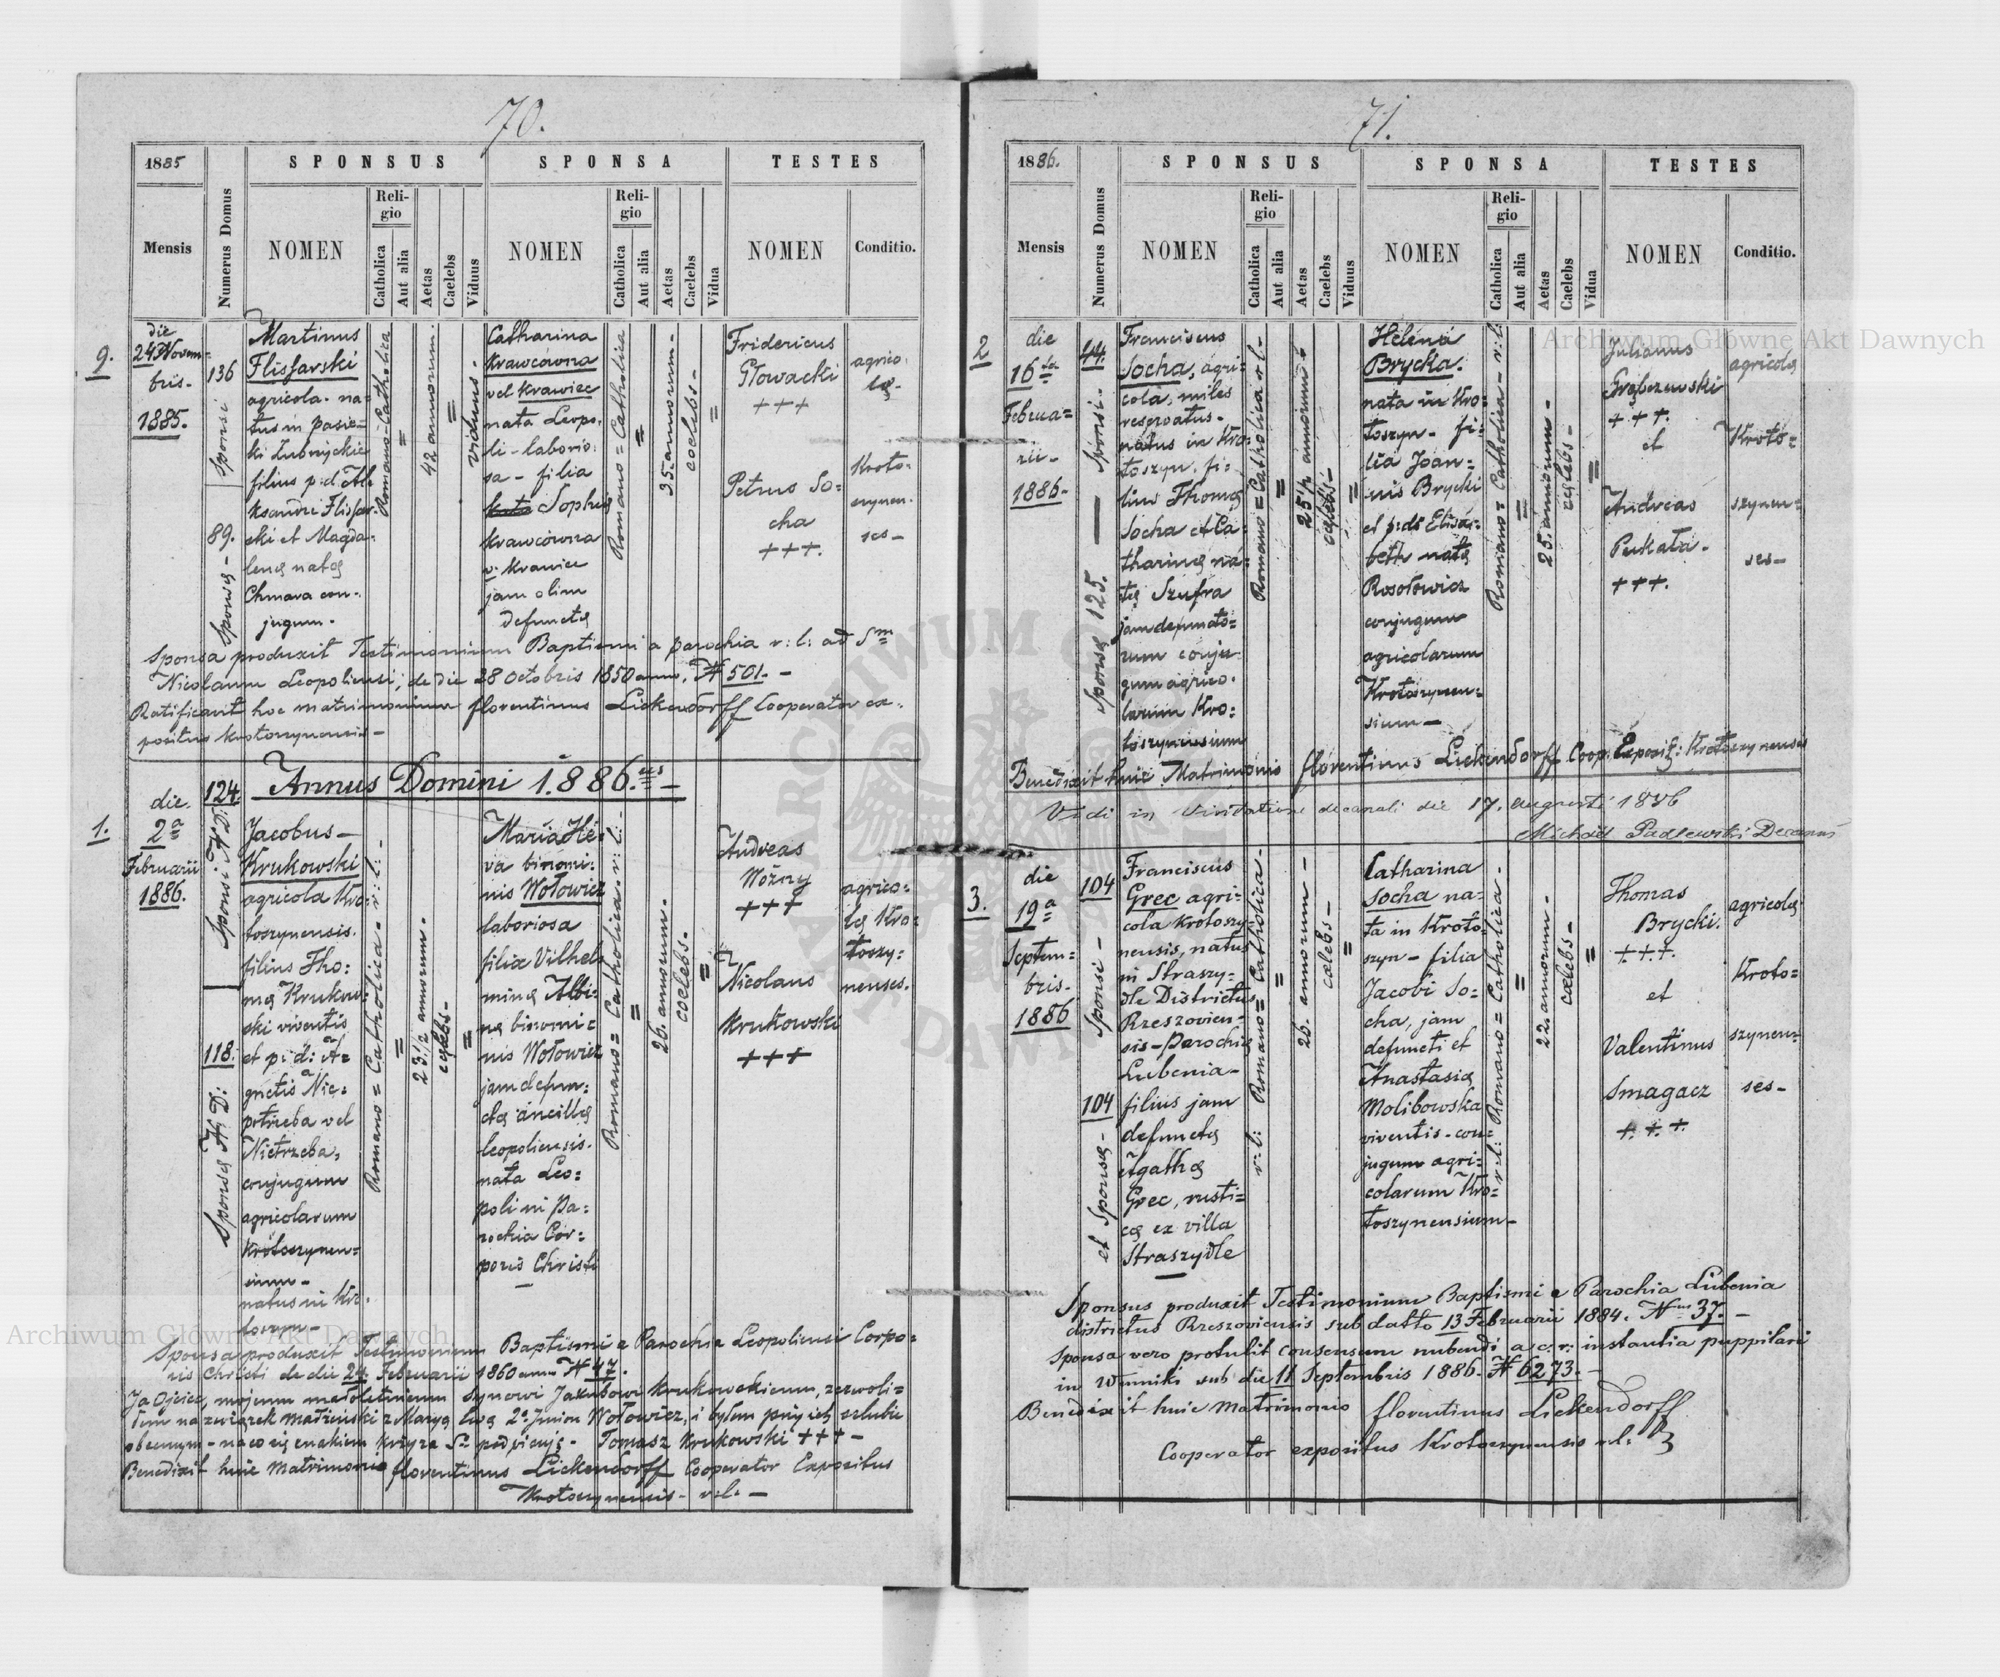 70.
1885
SPONSUS
SPONSA
TESTES
Mensis
Numerus Domus
NOMEN
Religio
Catholica
Aut alia
Aetas
Caelebs
Viduus
NOMEN
Religio
Catholica
Aut alia
Aetas
Caelebs
Vidua
NOMEN
Conditio.
9.
die
24 Novem=
bris.
1885.
136
Sponsi
89.
Sponsę –
Martinus
Flisfarski
agricola. na=
tus in pasie=
ki Zubrzyckie
filius p:d: Al=
ksandri Flisfar=
ski et Magda=
lenę natę
Chmara con=
jugum.
Romano-Catholica
=
42 annorum.
=
viduus.
Catharina
Krawcówna
vel Krawiec
nata Leopo.
li – laborio
sa – filia
Sophię
Krawcówna
v. Krawiec
jam olim
defunctę
Romano=Catholica
=
35. annorum –
coelebs –
=
Fridericus
Głowacki
+++
Petrus So=
cha
+++.
agrico.
lę.
Kroto.
szynen.
ses –
Sponsa produxit Testimonium Baptismi a parochia r: l: ad Sm
Nicolaum Leopoliensi, de die 28 Octobris 1850 anni, N 501. –
Ratificavit hoc matrimonium Florentinus Lickendorff Cooperator ex=
positus Krotoszynensis –
Annus Domini 1886.
1.
die.
2a
Februarii
1886.
124.
Sponsi N D:
118.
Sponsę N. D:
Jacobus –
Krukowski
agricola Kro=
toszynensis.
filius Tho:
mę Krukow=
ski viventis
et p: d: A=
gnetis Nie=
potrzeba vel
Nietrzeba,
conjugum
agricolarum
Krotoszynen=
sium –
natus in Kro.
toszyn –
Romano=Catholica – r: l: –
=
23 1/2 annorum –
cęlebs –
=
Maria He=
va binomi=
nis Wołowicz
laboriosa
filia Vilhel=
minę Albi=
nę binomi=
nis Wołowicz
jam defun=
ctę ancillę
leopoliensis.
nata Leo=
poli in Pa=
rochia Cor=
poris Christi
Romano=Catholica r: l: –
=
26. annorum.
coelebs –
=
Andreas
Wóżny
+++
Nicolaus
Krukowski
+++
agrico=
lę Kro=
toszy=
nenses.
Sponsa produxit Testimonium Baptismi e Parochia Leopoliensi Corpo=
ris Christi de die 24. Februarii 1860 anni N 47.
Ja Ojciec, mojemu małoletniemu synowi Jakubowi Krukowskiemu, zezwoli=
łem na związek małżeński z Maryą Ewą 2a Imion Wołowicz, i byłem przy ich szlubie
obecnym – na co się znakiem krzyża Sgo podpisuję. Tomasz Krukowski +++ –
Benedixit huic Matrimonio Florentinus Lickendorff Cooperator Expositus
Krotoszynensis – r: l: –
71.
1886.
SPONSUS
SPONSA
TESTES
Mensis
Numerus Domus
NOMEN
Religio
Catholica
Aut alia
Aetas
Caelebs
Viduus
NOMEN
Religio
Catholica
Aut alia
Aetas
Caelebs
Vidua
NOMEN
Conditio.
2
die
16ta
Februa=
rii –
1886 –
44.
Sponsi. –
Sponsę 125.
Franciscus
Socha, agri=
cola, miles
reservatus.
natus in Kro=
toszyn. fi=
lius Thomę
Socha et Ca=
tharinę na=
tę Szufra
jam defuncto=
rum conju=
gum agrico.
larum Kro=
toszynensium
Romano=Catholica r l –
=
25 1/2 annorum
cęlebs –
=
Helena
Brycka.
nata in Kro=
toszyn – fi=
lia Joan=
nis Brycki
et p: d: Elisa=
beth natę
Rosołowicz
conjugum
agricolarum
Krotoszynen=
sium –
Romano=Catholica – r: l:
=
25. annorum –
cęlebs –
=
Julianus
Grabczewski
+++.
et
Andreas
Pukała.
+++.
agricolę
Kroto=
szynen=
ses –
Benedixit huic Matrimonio Florentinus Lickendorff Coop. Exposit: Krotoszynensis
Vidi in Visitatione decanali die 17. augusti 1886
Michael Padlewski Decanus
3.
die
19a
Septem=
bris.
1886
104
Sponsi –
104
et Sponsę –
Franciscus
Grec agri=
cola Krotoszy=
nensis, natus
in Straszy=
dle Districtus
Rzeszovien=
sis – Parochię
Lubenia –
filius jam
defunctę
Agathę
Grec, rusti=
cę ex villa
Straszydle
Romano=Catholica –
r: l:
=
26. annorum –
cœlebs –
=
Catharina
Socha na=
ta in Kroto=
szyn – filia
Jacobi So=
cha, jam
defuncti et
Anastasię
Molibowska
viventis – con=
jugum agri=
colarum Kro=
toszynensium –
r: l: Romano=Catholica –
=
22. annorum –
cœlebs –
=
Thomas
Brycki.
+++.
et
Valentinus
Smagacz
+. +. +.
agricolę
Kroto=
szynen=
ses –
Sponsus produxit Testimonium Baptismi e Parochia Lubenia
districtus Rzeszoviensis sub datto 13 Februarii 1884. N 37. –
Sponsa vero protulit consensum nubendi a c: r: instantia puppilari
in Winniki sub die 11 Septembris 1886. N 6273. –
Benedixit huic Matrimonio Florentinus Lickendorff
Cooperator expositus Krotoszynensis r. l.
Archiwum Główne Akt Dawnych
Archiwum Główne Akt Dawnych
ARCHIWUM GŁÓWNE AKT DAWNYCH